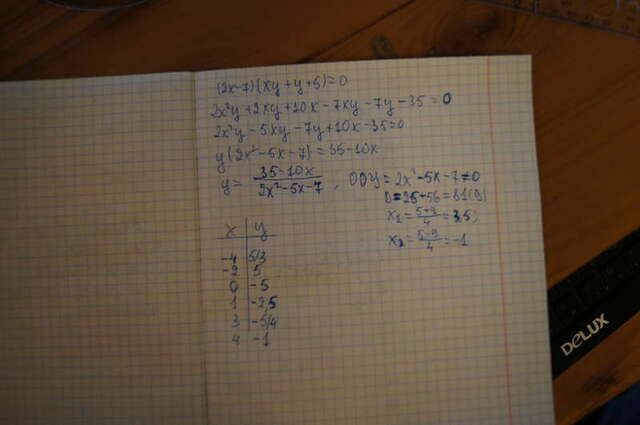 (2x-7)(xy+y+5)=0
2x²y+2xy+10x-7xy-7y-35=0
2x²y-5xy-7y+10x-35=0
y(2x²-5x-7)=35-10x
y= 35-10x / 2x²-5x-7 , ООУ= 2x²-5x-7≠0
D=25+56=81(9)
x₁= 5+9 / 4 =3,5;
x₂= 5-9 / 4 =-1
x y
-4 5/3
-2 5
0 -5
1 -2,5
3 -5/4
4 -1
DELUX